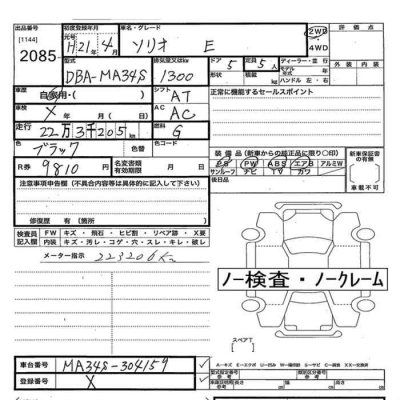 出品番号 初度登録年月 車名・グレード 評価点
[1144] 元号 H21年4月 ソリオ E 2WD
2085 4WD
型式 排気量又はkw ドア 形状 定員 ディーラー・並行
DBA-MA34S 1300 5 5人 モデル年式
積載 kg ハンドル 左・右 外装 内装
車歴 自家用・( ) シフト AT 正常に機能するセールスポイント
車検 X 年 月 日 AC AC
走行 22万3千205km 燃料 G
色 ブラック 色替 装備品(新車からの純正品に限り○印) 新車保証書の有無
R券 9810 名変期限 有効期限 PS PW ABS エアB アルミW
サンルーフ ナビ TV カワ
注意事項申告欄(不具合内容等は具体的に記入して下さい) 後日品 車載不可
修復歴 有(箇所 )
検査員記入欄 FW キズ・飛石・ヒビ割・リペア跡・X要
内装 キズ・汚レ・コゲ・穴・スレ・キレ・破レ
メーター指示 223206Km
ノー検査・ノークレーム
スペアT [ ]
車台番号 MA34S-304159
登録番号 X